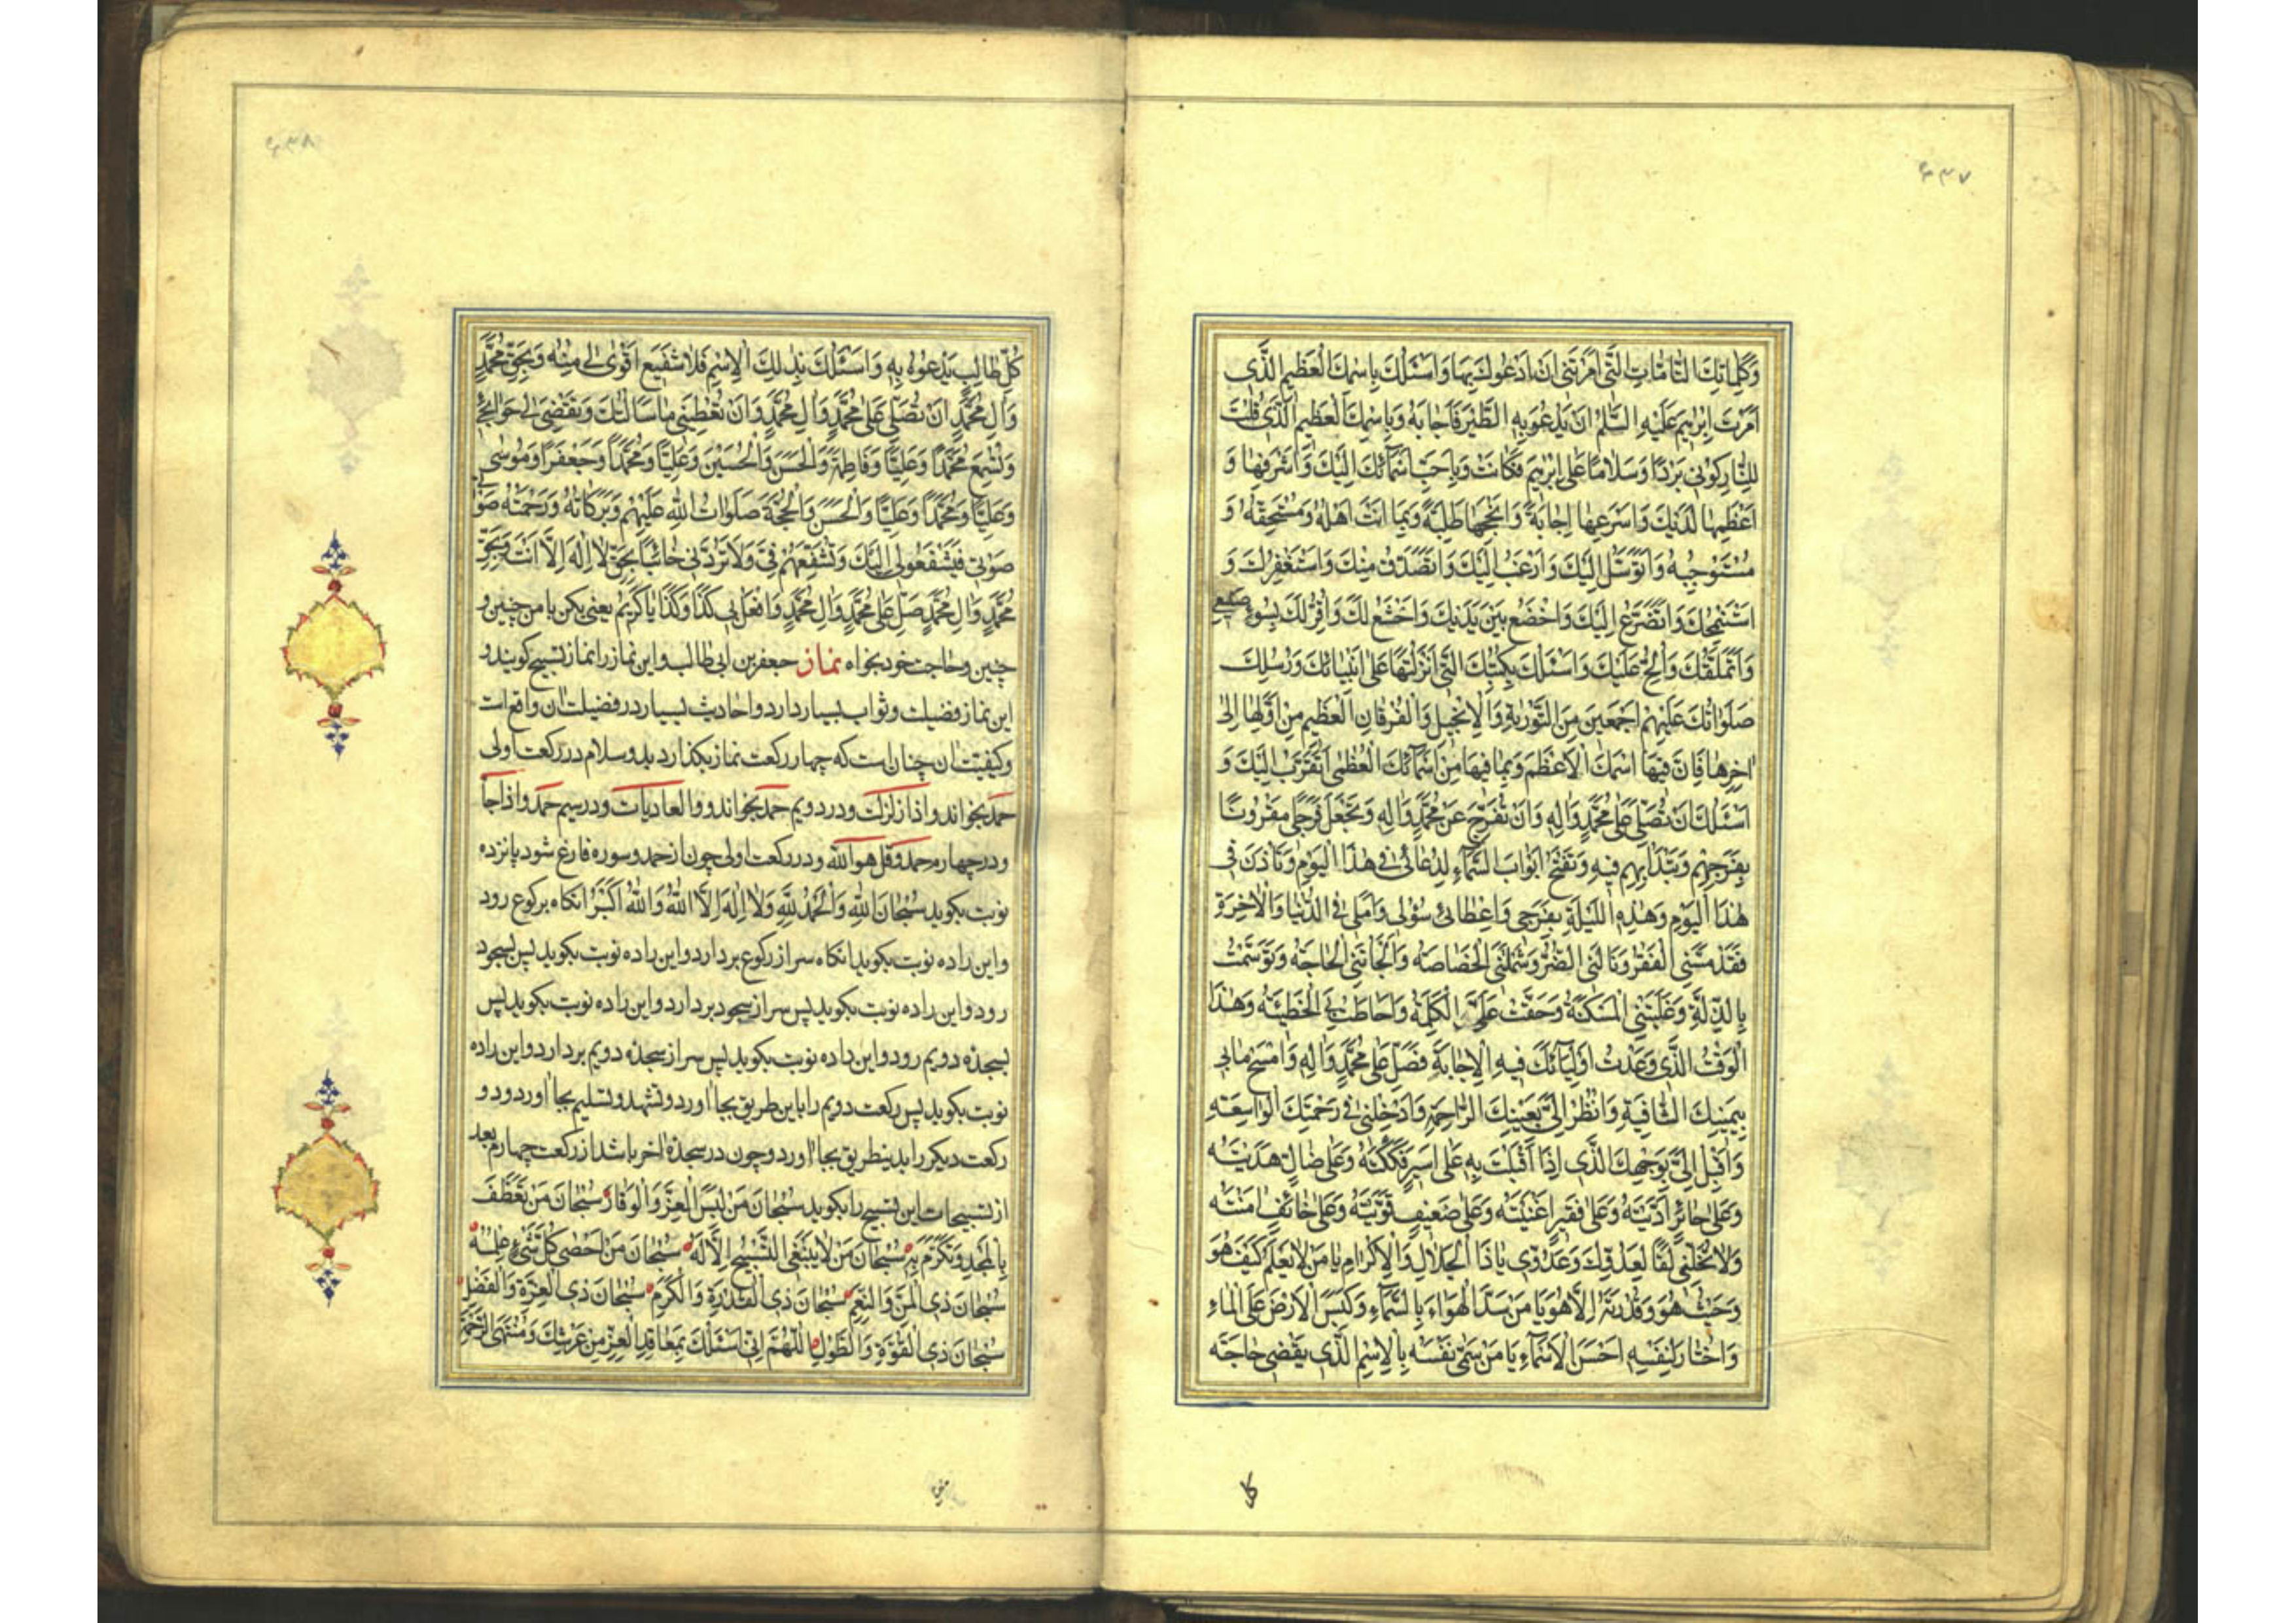 ۴۳۷
وَكَلِمَاتِكَ التَّامَّاتِ الَّتِي اَمَرْتَنِي اَنْ اَدْعُوكَ بِهَا وَاَسْئَلُكَ بِاسْمِكَ الْعَظِيمِ الَّذِي
اَمَرْتَ اِبْرٰهِيمَ عَلَيْهِ السَّلٰمُ اَنْ يَدْعُوَ بِهِ الطَّيْرَ فَاَجَابَهُ وَبِاسْمِكَ الْعَظِيمِ الَّذِي قُلْتَ
لِلنَّارِ كُونِي بَرْدًا وَسَلَامًا عَلٰى اِبْرٰهِيمَ فَكَانَتْ وَبِاَحَبِّ اَسْمَائِكَ اِلَيْكَ وَاَشْرَفِهَا وَ
اَعْظَمِهَا لَدَيْكَ وَاَسْرَعِهَا اِجَابَةً وَاَنْجَحِهَا طَلِبَةً وَبِمَا اَنْتَ اَهْلُهُ وَمُسْتَحِقُّهُ وَ
مُسْتَوْجِبُهُ وَاَتَوَسَّلُ اِلَيْكَ وَاَرْغَبُ اِلَيْكَ وَاَتَصَدَّقُ مِنْكَ وَاَسْتَغْفِرُكَ وَ
اَسْتَمْنِحُكَ وَاَتَضَرَّعُ اِلَيْكَ وَاَخْضَعُ بَيْنَ يَدَيْكَ وَاَخْشَعُ لَكَ وَاُقِرُّ لَكَ بِسُوءِ صَنِيعِي
وَاَتَمَلَّقُكَ وَاُلِحُّ عَلَيْكَ وَاَسْئَلُكَ بِكُتُبِكَ الَّتِي اَنْزَلْتَهَا عَلٰى اَنْبِيَائِكَ وَرُسُلِكَ
صَلَوَاتُكَ عَلَيْهِمْ اَجْمَعِينَ مِنَ التَّوْرٰيةِ وَالْاِنْجِيلِ وَالْفُرْقَانِ الْعَظِيمِ مِنْ اَوَّلِهَا اِلٰى
اٰخِرِهَا فَاِنَّ فِيهَا اسْمَكَ الْاَعْظَمَ وَبِمَا فِيهَا مِنْ اَسْمَائِكَ الْعُظْمٰى اَتَقَرَّبُ اِلَيْكَ وَ
اَسْئَلُكَ اَنْ تُصَلِّيَ عَلٰى مُحَمَّدٍ وَاٰلِهِ وَاَنْ تُفَرِّجَ عَنْ مُحَمَّدٍ وَاٰلِهِ وَتَجْعَلَ فَرَجِي مَقْرُونًا
بِفَرَجِهِمْ وَتَبْدَأَ بِهِمْ فِيهِ وَتَفْتَحَ اَبْوَابَ السَّمَاءِ لِدُعَائِي فِي هٰذَا الْيَوْمِ وَتَاْذَنَ فِي
هٰذَا الْيَوْمِ وَهٰذِهِ اللَّيْلَةِ بِفَرَجِي وَاِعْطَائِي سُؤْلِي وَاَمَلِي فِي الدُّنْيَا وَالْاٰخِرَةِ
فَقَدْ مَسَّنِي الْفَقْرُ وَنَالَنِي الضُّرُّ وَشَمِلَتْنِي الْخَصَاصَةُ وَاَلْجَاَتْنِي الْحَاجَةُ وَتَوَسَّمْتُ
بِالذِّلَّةِ وَغَلَبَتْنِي الْمَسْكَنَةُ وَحَقَّتْ عَلَيَّ الْكَلِمَةُ وَاَحَاطَتْ بِيَ الْخَطِيئَةُ وَهٰذَا
الْوَقْتُ الَّذِي وَعَدْتَ اَوْلِيَائَكَ فِيهِ الْاِجَابَةَ فَصَلِّ عَلٰى مُحَمَّدٍ وَاٰلِهِ وَامْسَحْ مَا بِي
بِيَمِينِكَ الشَّافِيَةِ وَانْظُرْ اِلَيَّ بِعَيْنِكَ الرَّاحِمَةِ وَاَدْخِلْنِي فِي رَحْمَتِكَ الْوَاسِعَةِ
وَاَقْبِلْ اِلَيَّ بِوَجْهِكَ الَّذِي اِذَا اَقْبَلْتَ بِهِ عَلٰى اَسِيرٍ فَكَكْتَهُ وَعَلٰى ضَالٍّ هَدَيْتَهُ
وَعَلٰى حَائِرٍ اَدَّيْتَهُ وَعَلٰى فَقِيرٍ اَغْنَيْتَهُ وَعَلٰى ضَعِيفٍ قَوَّيْتَهُ وَعَلٰى خَائِفٍ اٰمَنْتَهُ
وَلَا تُخَلِّنِي لَقًا لِعَدُوِّكَ وَعَدُوِّي يَا ذَا الْجَلَالِ وَالْاِكْرَامِ يَا مَنْ لَا يَعْلَمُ كَيْفَ هُوَ
وَحَيْثُ هُوَ وَقُدْرَتَهُ اِلَّا هُوَ يَا مَنْ سَدَّ الْهَوَاءَ بِالسَّمَاءِ وَكَبَسَ الْاَرْضَ عَلَى الْمَاءِ
وَاخْتَارَ لِنَفْسِهِ اَحْسَنَ الْاَسْمَاءِ يَا مَنْ سَمّٰى نَفْسَهُ بِالْاِسْمِ الَّذِي يَقْضِي حَاجَةَ
كل
۴۳۸
كُلِّ طَالِبٍ يَدْعُوهُ بِهِ وَاَسْئَلُكَ بِذٰلِكَ الْاِسْمِ فَلَا شَفِيعَ اَقْوٰى لِي مِنْهُ وَبِحَقِّ مُحَمَّدٍ
وَاٰلِ مُحَمَّدٍ اَنْ تُصَلِّيَ عَلٰى مُحَمَّدٍ وَاٰلِ مُحَمَّدٍ وَاَنْ تُعْطِيَنِي مَا سَاَلْتُكَ وَتَقْضِيَ لِي حَوَائِجِي
وَتُسْمِعَ مُحَمَّدًا وَعَلِيًّا وَفَاطِمَةَ وَالْحَسَنَ وَالْحُسَيْنَ وَعَلِيًّا وَمُحَمَّدًا وَجَعْفَرًا وَمُوسٰى
وَعَلِيًّا وَمُحَمَّدًا وَعَلِيًّا وَالْحَسَنَ وَالْحُجَّةَ صَلَوَاتُ اللّٰهِ عَلَيْهِمْ وَبَرَكَاتُهُ وَرَحْمَتُهُ
صَوْتِي فَيَشْفَعُوا لِي اِلَيْكَ وَتُشَفِّعَهُمْ فِيَّ وَلَا تَرُدَّنِي خَائِبًا بِحَقِّ لَا اِلٰهَ اِلَّا اَنْتَ وَبِحَقِّ
مُحَمَّدٍ وَاٰلِ مُحَمَّدٍ صَلِّ عَلٰى مُحَمَّدٍ وَاٰلِ مُحَمَّدٍ وَافْعَلْ بِي كَذَا وَكَذَا يَا كَرِيمُ يعنى بكن با من چنين و
چنين وحاجت خود بخواه نماز جعفر بن ابى طالب و اين نماز را نماز تسبيح كويند و
اين نماز فضيلت و ثواب بسيار دارد و احاديث بسيار در فضيلت ان واقع است
و كيفيت ان چنان است كه چهار ركعت نماز بكذارد بدو سلام در ركعت اولى
حمد بخواند و اذا زلزلت و در دويم حمد بخواند و والعاديات و در سيم حمد و اذا جا
و در چهارم حمد و قل هو الله و در ركعت اولى چون از حمد و سوره فارغ شود پانزده
نوبت بكويد سُبْحَانَ اللّٰهِ وَالْحَمْدُ لِلّٰهِ وَلَا اِلٰهَ اِلَّا اللّٰهُ وَاللّٰهُ اَكْبَرُ انكاه بركوع رود
و اين را ده نوبت بكويد انكاه سر از ركوع بردارد و اين را ده نوبت بكويد پس بسجود
رود و اين را ده نوبت بكويد پس سر از سجود بردارد و اين را ده نوبت بكويد پس
بسجده دويم رود و اين را ده نوبت بكويد پس سر از سجده دويم بردارد و اين را ده
نوبت بكويد پس ركعت دويم را باين طريق بجا اورد و تشهد و تسليم بجا اورد و دو
ركعت ديكر را بدينطريق بجا اورد و چون در سجده اخر باشد از ركعت چهارم بعد
از تسبيحات اين تسبيح را بكويد سُبْحَانَ مَنْ لَبِسَ الْعِزَّ وَالْوَقَارَ سُبْحَانَ مَنْ تَعَطَّفَ
بِالْمَجْدِ وَتَكَرَّمَ بِهِ سُبْحَانَ مَنْ لَا يَنْبَغِي التَّسْبِيحُ اِلَّا لَهُ سُبْحَانَ مَنْ اَحْصٰى كُلَّ شَيْءٍ عِلْمُهُ
سُبْحَانَ ذِي الْمَنِّ وَالنِّعَمِ سُبْحَانَ ذِي الْقُدْرَةِ وَالْكَرَمِ سُبْحَانَ ذِي الْعِزَّةِ وَالْفَضْلِ
سُبْحَانَ ذِي الْقُوَّةِ وَالطَّوْلِ اَللّٰهُمَّ اِنِّي اَسْئَلُكَ بِمَعَاقِدِ الْعِزِّ مِنْ عَرْشِكَ وَمُنْتَهَى الرَّحْمَةِ